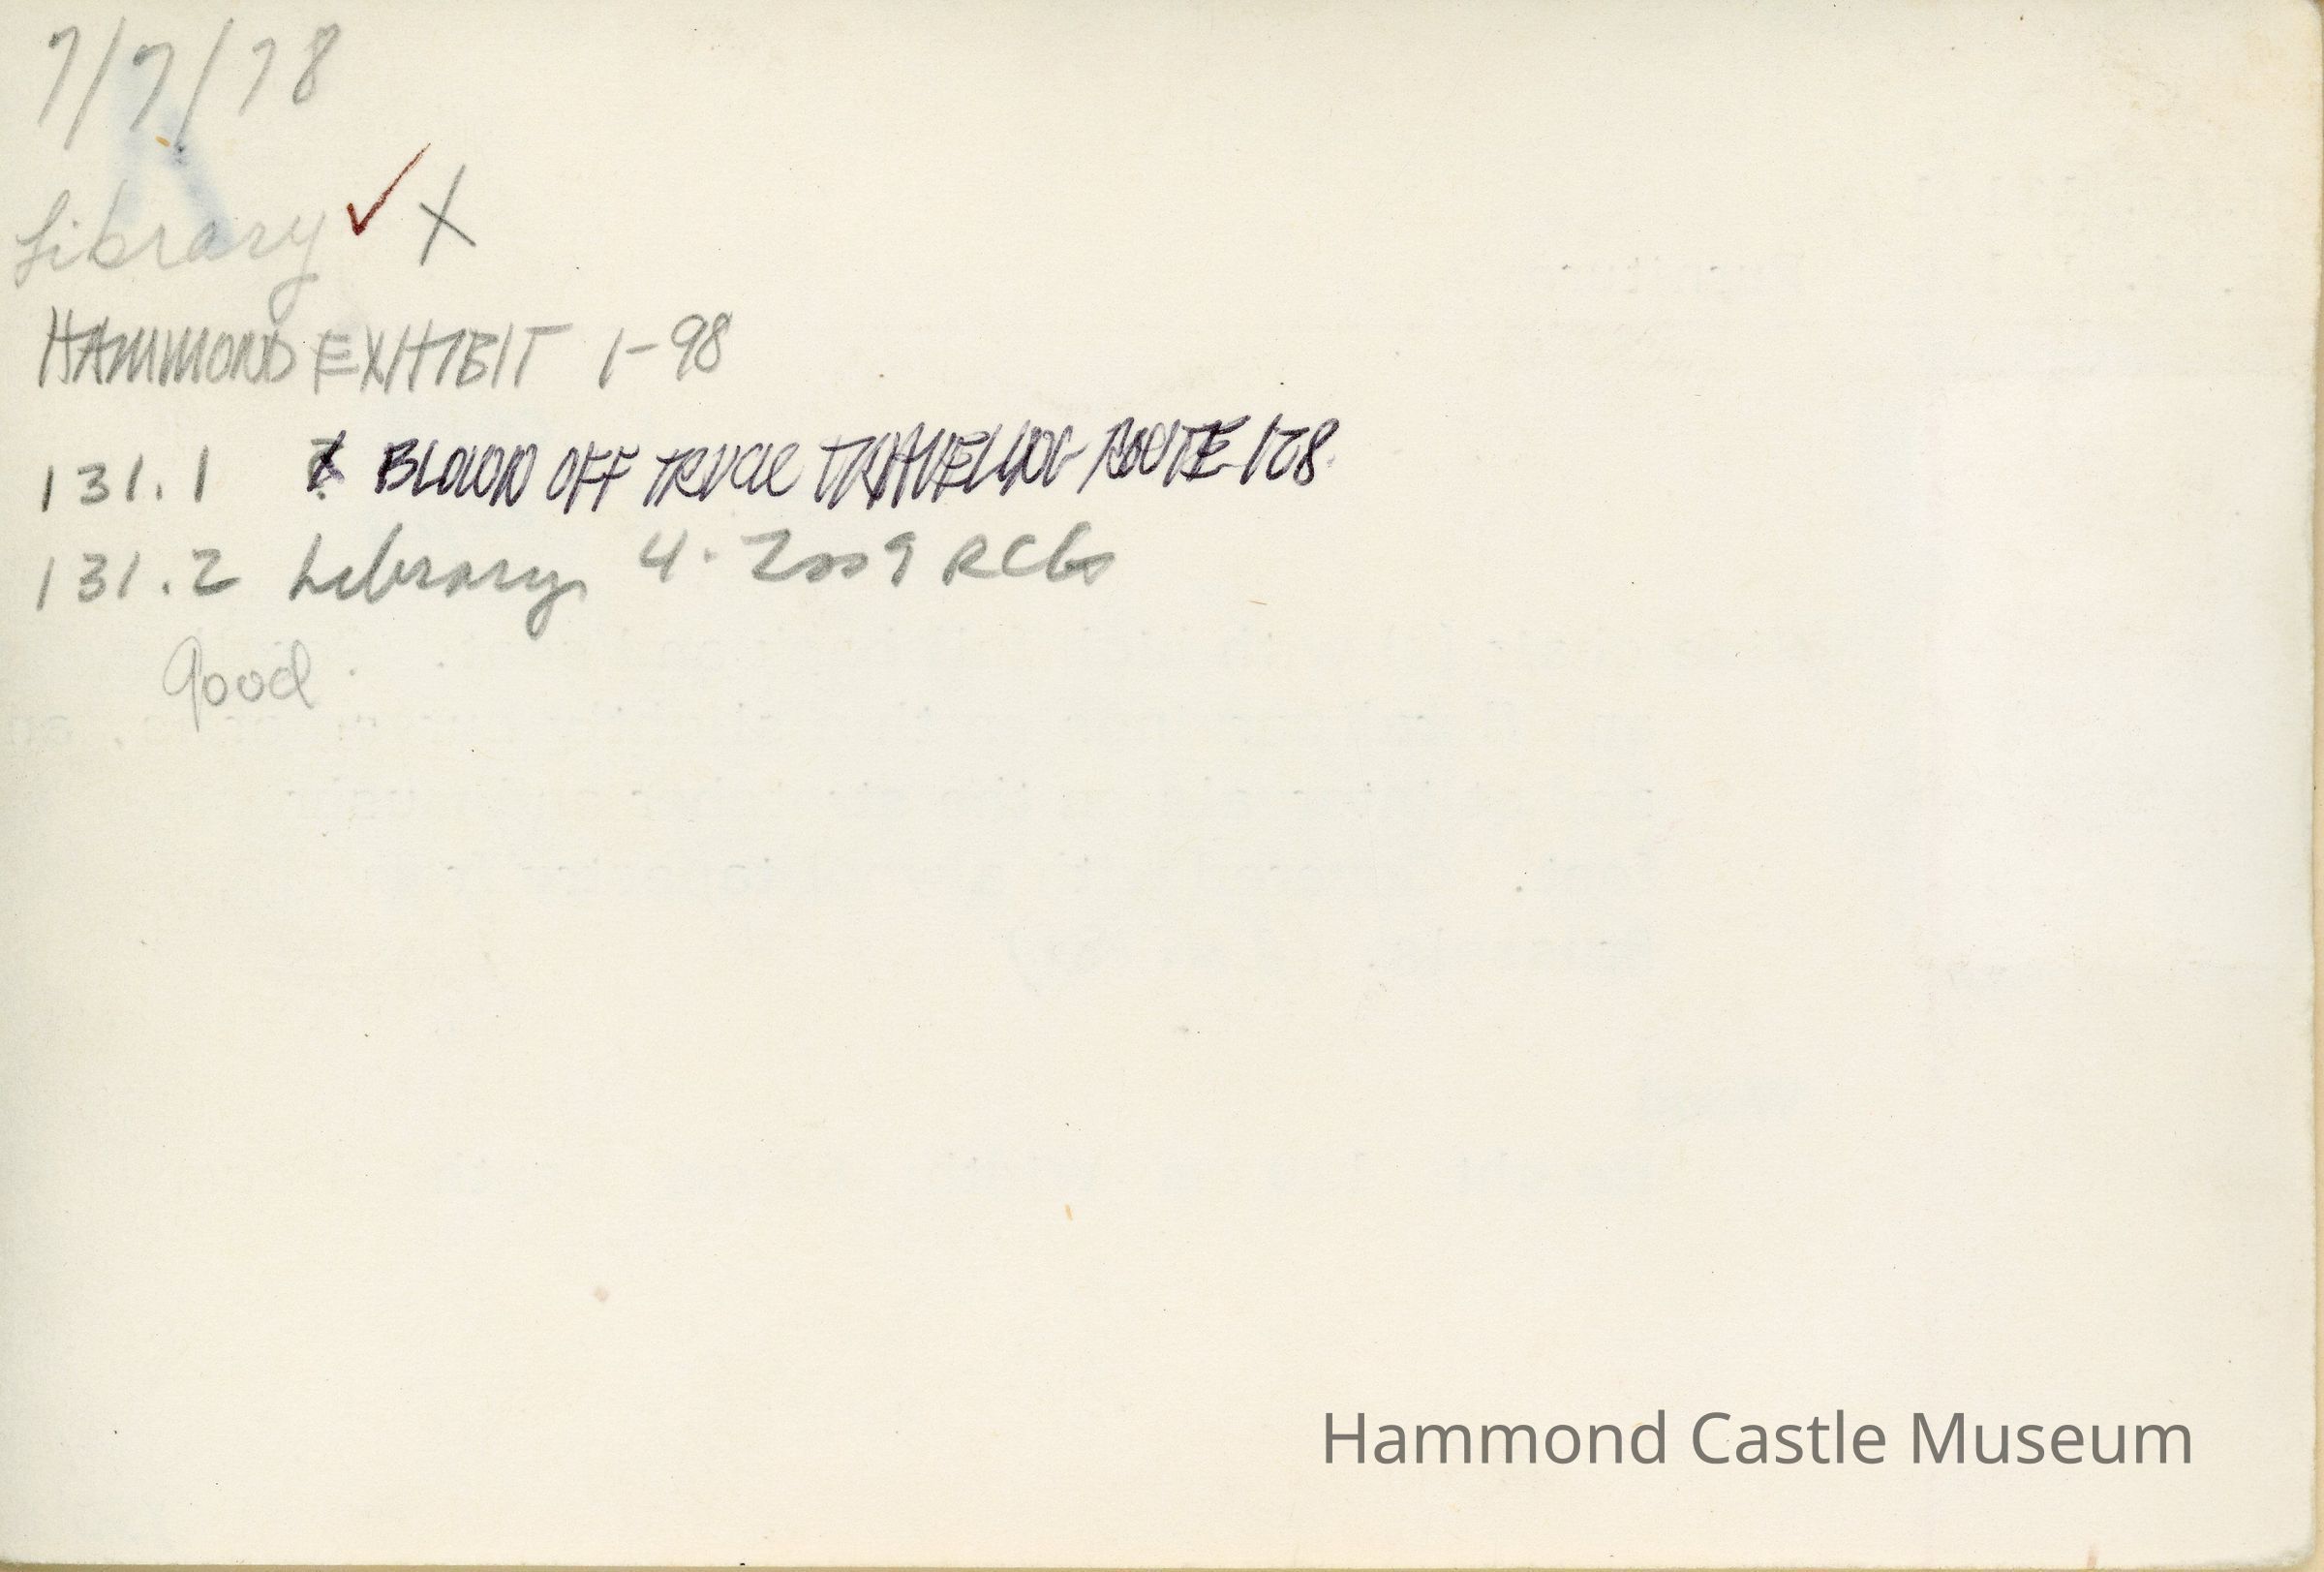 7/7/78
Library ✓ X
HAMMOND EXHIBIT 1-98
131.1 BLOWN OFF TRUCK TRAVELLING ROUTE 128
131.2 Library 4.2009 RCG
Good.
Hammond Castle Museum